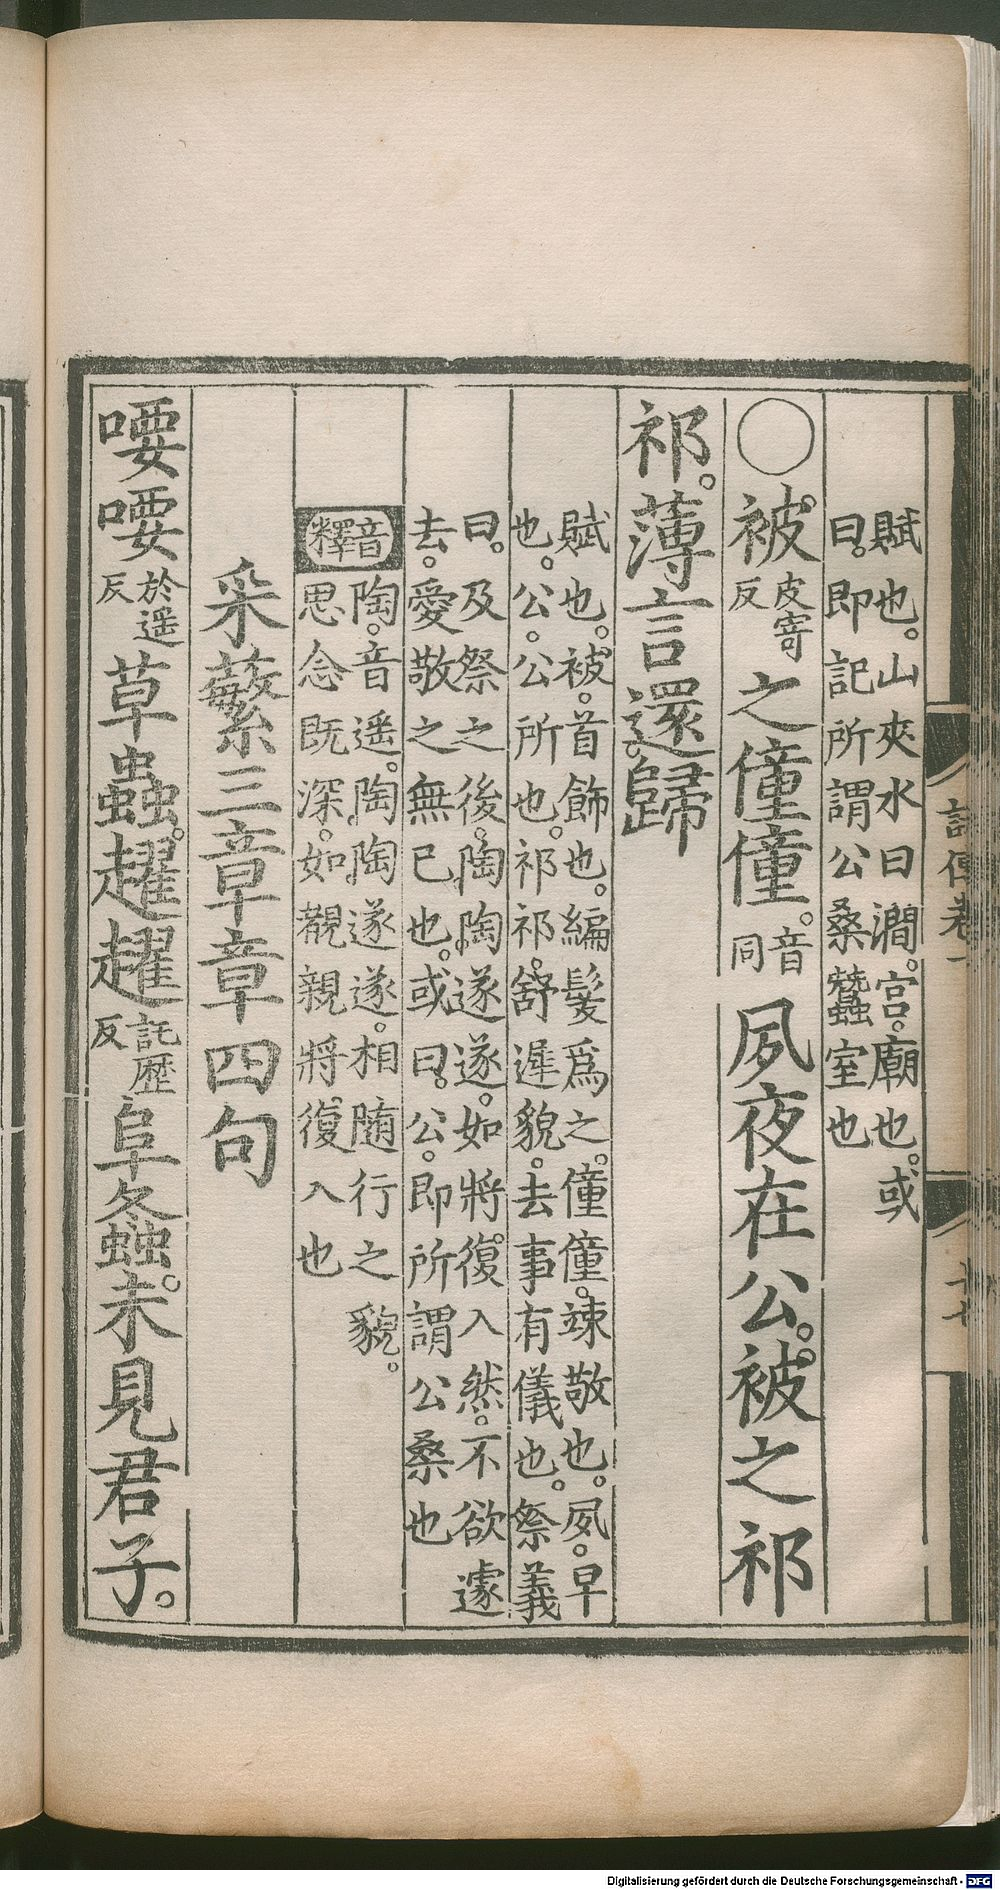 賦也。山夾水曰澗。宮。廟也。或
曰。即記所謂公桑蠶室也
○被皮寄反之僮僮。音同夙夜在公。被之祁
祁。薄言還歸
賦也。被。首飾也。編髮爲之。僮僮。竦敬也。夙。早
也。公。公所也。祁祁。舒遲貌。去事有儀也。祭義
曰。及祭之後。陶陶遂遂。如將復入然。不欲遽
去。愛敬之無已也。或曰。公。即所謂公桑也
音釋
陶。音遥。陶陶遂遂。相隨行之貌。
思念既深。如覩親將復入也
采蘩三章章四句
喓喓於遥反草蟲。趯趯託歷反阜螽。未見君子。
詩傳卷一
十七
Digitalisierung gefördert durch die Deutsche Forschungsgemeinschaft - DFG